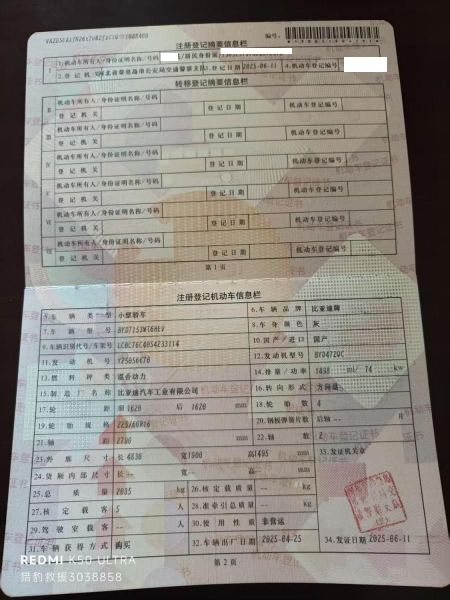 注册登记摘要信息栏
1.机动车所有人/身份证明名称/号码 /居民身份证/
2.登记机关 河北省秦皇岛市公安局交通警察支队 3.登记日期 2025-06-11 4.机动车登记编号
转移登记摘要信息栏
Ⅱ 机动车所有人/身份证明名称/号码
登记机关 登记日期 机动车登记编号
Ⅲ 机动车所有人/身份证明名称/号码
登记机关 登记日期 机动车登记编号
机动车所有人/身份证明名称/号码
登记机关 登记日期 机动车登记编号
Ⅴ 机动车所有人/身份证明名称/号码
登记机关 登记日期 机动车登记编号
Ⅵ 机动车所有人/身份证明名称/号码
登记机关 登记日期 机动车登记编号
Ⅶ 机动车所有人/身份证明名称/号码
登记机关 登记日期 机动车登记编号
第1页
注册登记机动车信息栏
5.车辆类型 小型轿车 6.车辆品牌 比亚迪牌
7.车辆型号 BYD7153WT6HEV 8.车身颜色 灰
9.车辆识别代号/车架号 LC0C76C40S4233114 10.国产/进口 国产
11.发动机号 12.发动机型号 BYD472QC
13.燃料种类 混合动力 14.排量/功率 1498 ml/ 74 kw
15.制造厂名称 比亚迪汽车工业有限公司 16.转向形式 方向盘
17.轮距 前1620 后1620 mm 18.轮胎数 4
19.轮胎规格 225/60R16 20.钢板弹簧片数 后轴-- 片
21.轴距 mm 22.轴数 2
23.外廓尺寸 长4830 宽1900 高1495 mm 33.发证机关章
24.货厢内部尺寸 长-- 宽-- 高-- mm
25.总质量 2035 kg 26.核定载质量 -- kg
27.核定载客 5 人 28.准牵引总质量 -- kg
29.驾驶室载客 -- 人 30.使用性质 非营运
31.车辆获得方式 购买 32.车辆出厂日期 2025-04-25 34.发证日期 2025-06-11
第2页
REDMI K50 ULTRA
猎豹救援3038858